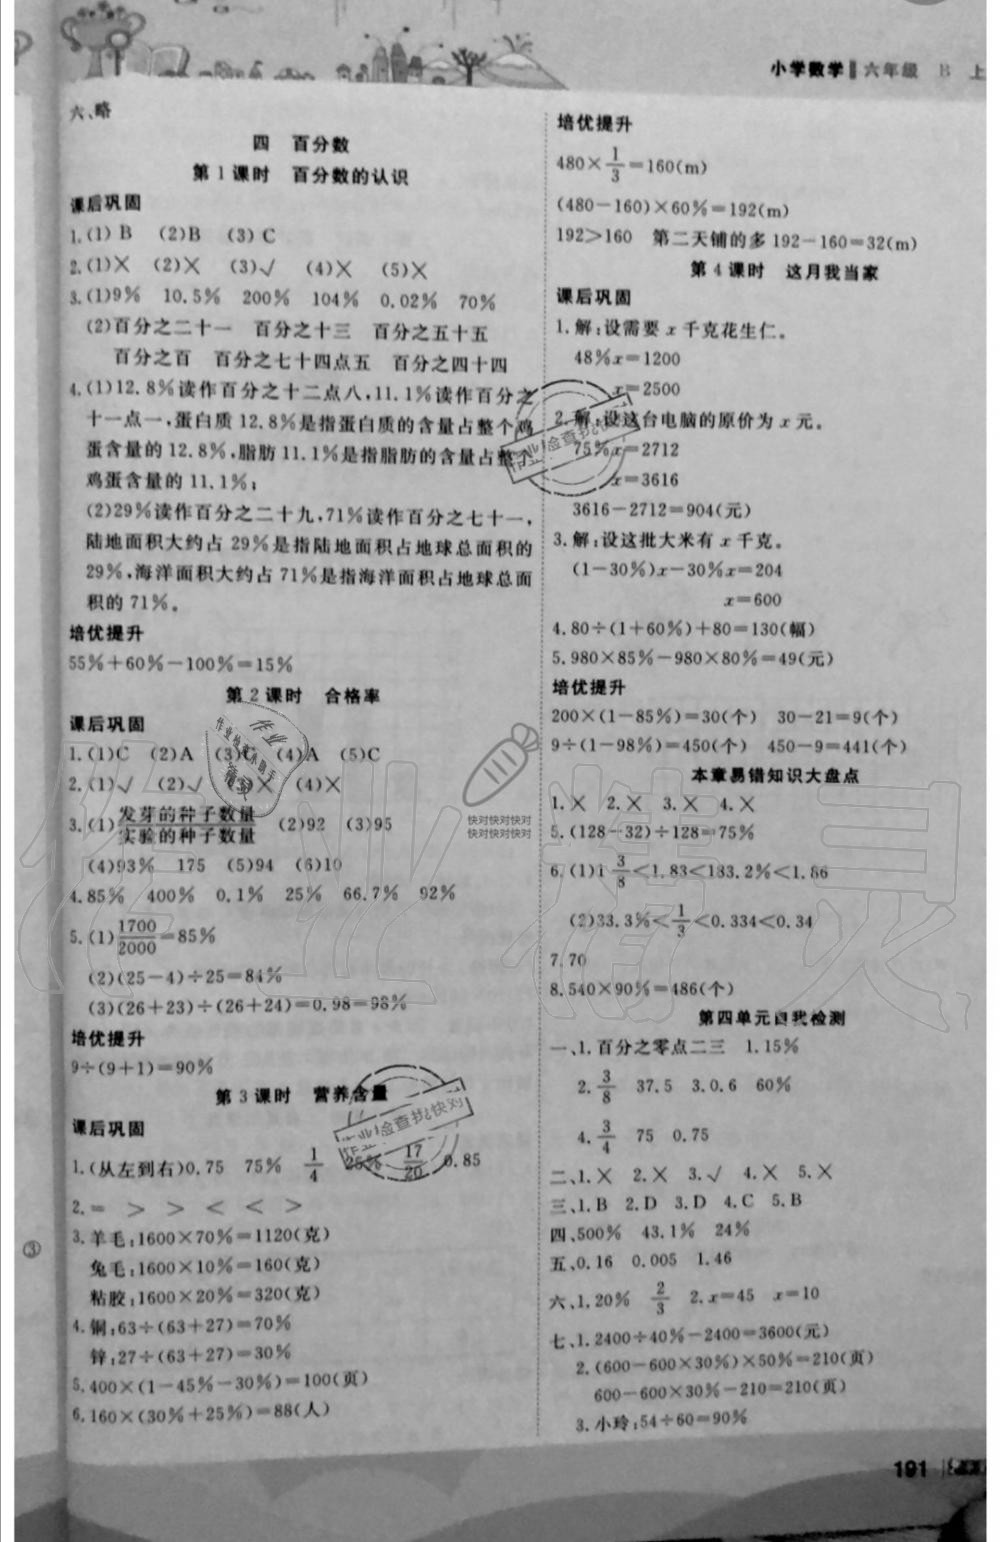 小学数学 六年级 B 上
六、略
四 百分数
第1课时 百分数的认识
课后巩固
1.(1)B (2)B (3)C
2.(1)× (2)× (3)√ (4)× (5)×
3.(1)9% 10.5% 200% 104% 0.02% 70%
(2)百分之二十一 百分之十三 百分之五十五
百分之百 百分之七十四点五 百分之四十四
4.(1)12.8%读作百分之十二点八,11.1%读作百分之
十一点一,蛋白质12.8%是指蛋白质的含量占整个鸡
蛋含量的12.8%,脂肪11.1%是指脂肪的含量占整个
鸡蛋含量的11.1%;
(2)29%读作百分之二十九,71%读作百分之七十一,
陆地面积大约占29%是指陆地面积占地球总面积的
29%,海洋面积大约占71%是指海洋面积占地球总面
积的71%。
培优提升
55%+60%-100%=15%
第2课时 合格率
课后巩固
1.(1)C (2)A (3)C (4)A (5)C
2.(1)√ (2)√ (3)× (4)×
3.(1)发芽的种子数量/实验的种子数量 (2)92 (3)95
(4)93% 175 (5)94 (6)10
4.85% 400% 0.1% 25% 66.7% 92%
5.(1)1700/2000=85%
(2)(25-4)÷25=84%
(3)(26+23)÷(26+24)=0.98=98%
培优提升
9÷(9+1)=90%
第3课时 营养含量
课后巩固
1.(从左到右)0.75 75% 1/4 25% 17/20 0.85
2.= > > < < >
3.羊毛:1600×70%=1120(克)
兔毛:1600×10%=160(克)
粘胶:1600×20%=320(克)
4.铜:63÷(63+27)=70%
锌:27÷(63+27)=30%
5.400×(1-45%-30%)=100(页)
6.160×(30%+25%)=88(人)
培优提升
480×1/3=160(m)
(480-160)×60%=192(m)
192>160 第二天铺的多 192-160=32(m)
第4课时 这月我当家
课后巩固
1.解:设需要x千克花生仁。
48%x=1200
x=2500
2.解:设这台电脑的原价为x元。
75%x=2712
x=3616
3616-2712=904(元)
3.解:设这批大米有x千克。
(1-30%)x-30%x=204
x=600
4.80÷(1+60%)+80=130(幅)
5.980×85%-980×80%=49(元)
培优提升
200×(1-85%)=30(个) 30-21=9(个)
9÷(1-98%)=450(个) 450-9=441(个)
本章易错知识大盘点
1.× 2.× 3.× 4.×
5.(128-32)÷128=75%
6.(1)1 3/8<1.83<183.2%<1.86
(2)33.3%<1/3<0.334<0.34
7.70
8.540×90%=486(个)
第四单元自我检测
一、1.百分之零点二三 1.15%
2.3/8 37.5 3.0.6 60%
4.3/4 75 0.75
二、1.× 2.× 3.√ 4.× 5.×
三、1.B 2.D 3.D 4.C 5.B
四、500% 43.1% 24%
五、0.16 0.005 1.46
六、1.20% 2/3 2.x=45 x=10
七、1.2400÷40%-2400=3600(元)
2.(600-600×30%)×50%=210(页)
600-600×30%-210=210(页)
3.小玲:54÷60=90%
191
③
作业精灵
快对快对快对
快对快对快对
作业检查找快对
作业检查找快对